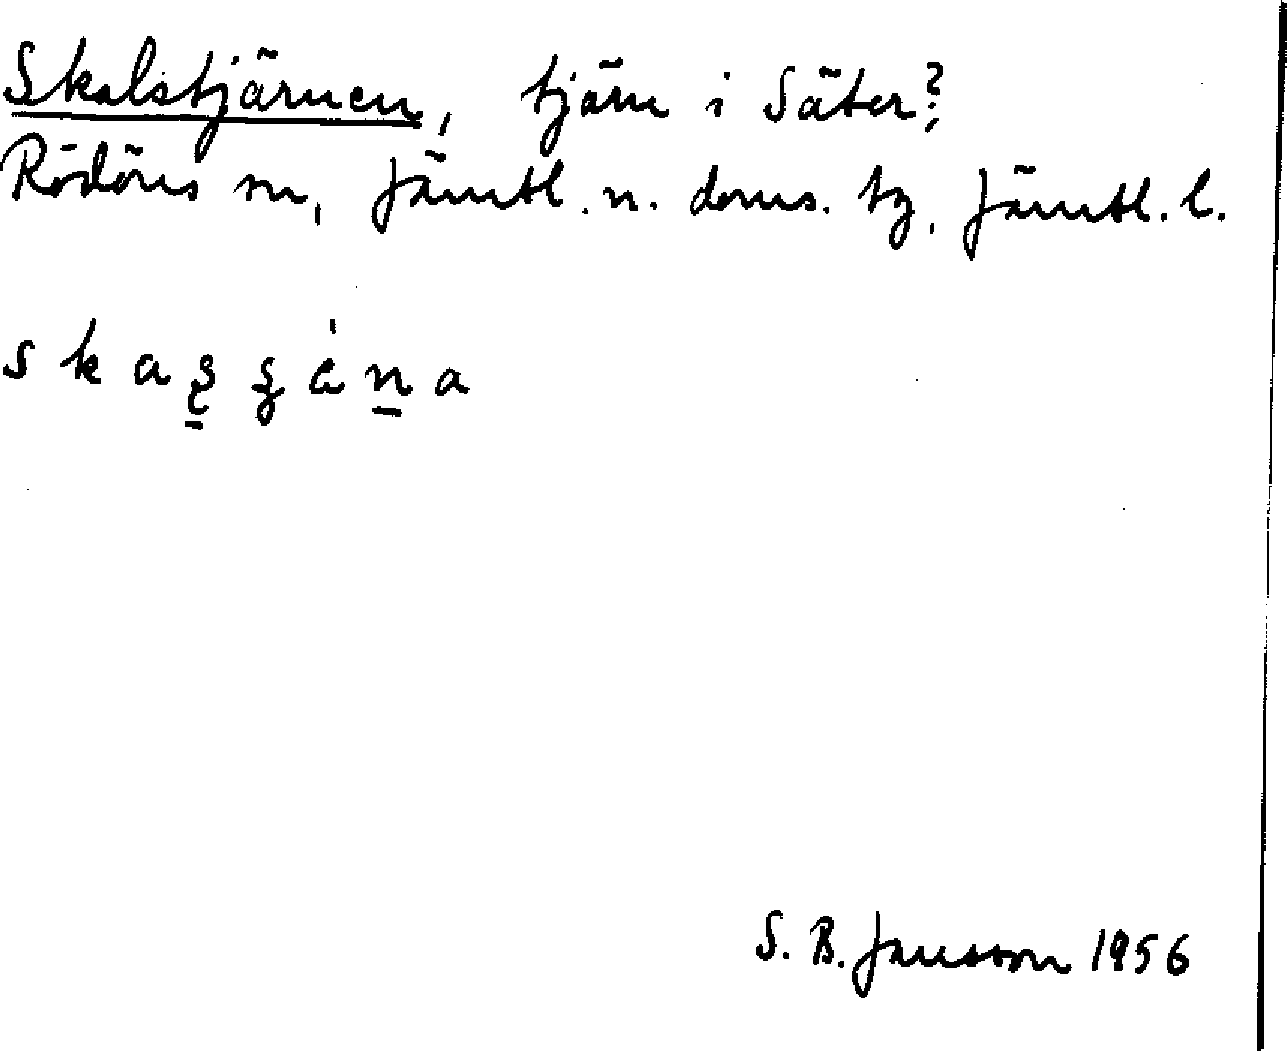 Skalstjärnen, tjärn i Säter?;
Rödöns sn, Jämtl. n. doms. tg, Jämtl. l.
S. B. Jansson 1956